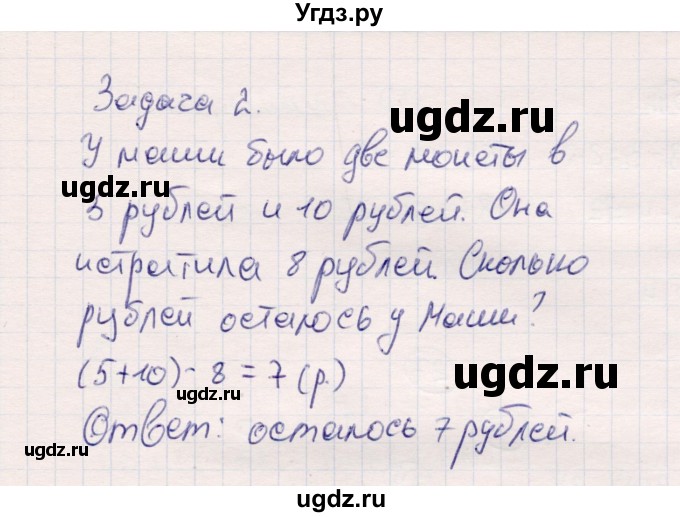 Угдз.ру
Задача 2.
ugdz.ru
У маши было две монеты в
ugdz.ru
5 рублей и 10 рублей. Она
истратила 8 рублей. Сколько
рублей осталось у Маши?
(5+10) - 8 = 7 (р.)
ugdz.ru
ugdz.ru
Ответ: осталось 7 рублей.
ugdz.ru
ugdz.ru